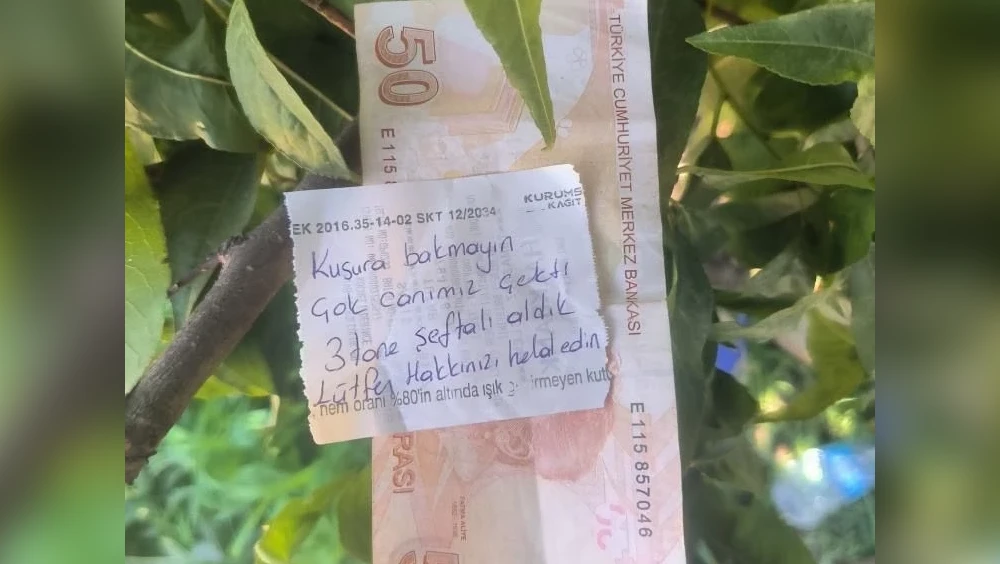 50
TÜRKİYE CUMHURİYET MERKEZ BANKASI
E 115
KURUMS
KAĞIT
EK 2016.35-14-02 SKT 12/2034
Kusura bakmayın
Çok canımız çekti
3 tane şeftali aldık
Lütfen Hakkınızı helal edin
nem oranı %80'in altında ışık irmeyen kutu
E 115 857046
RASI
FATMA ALİYE
5